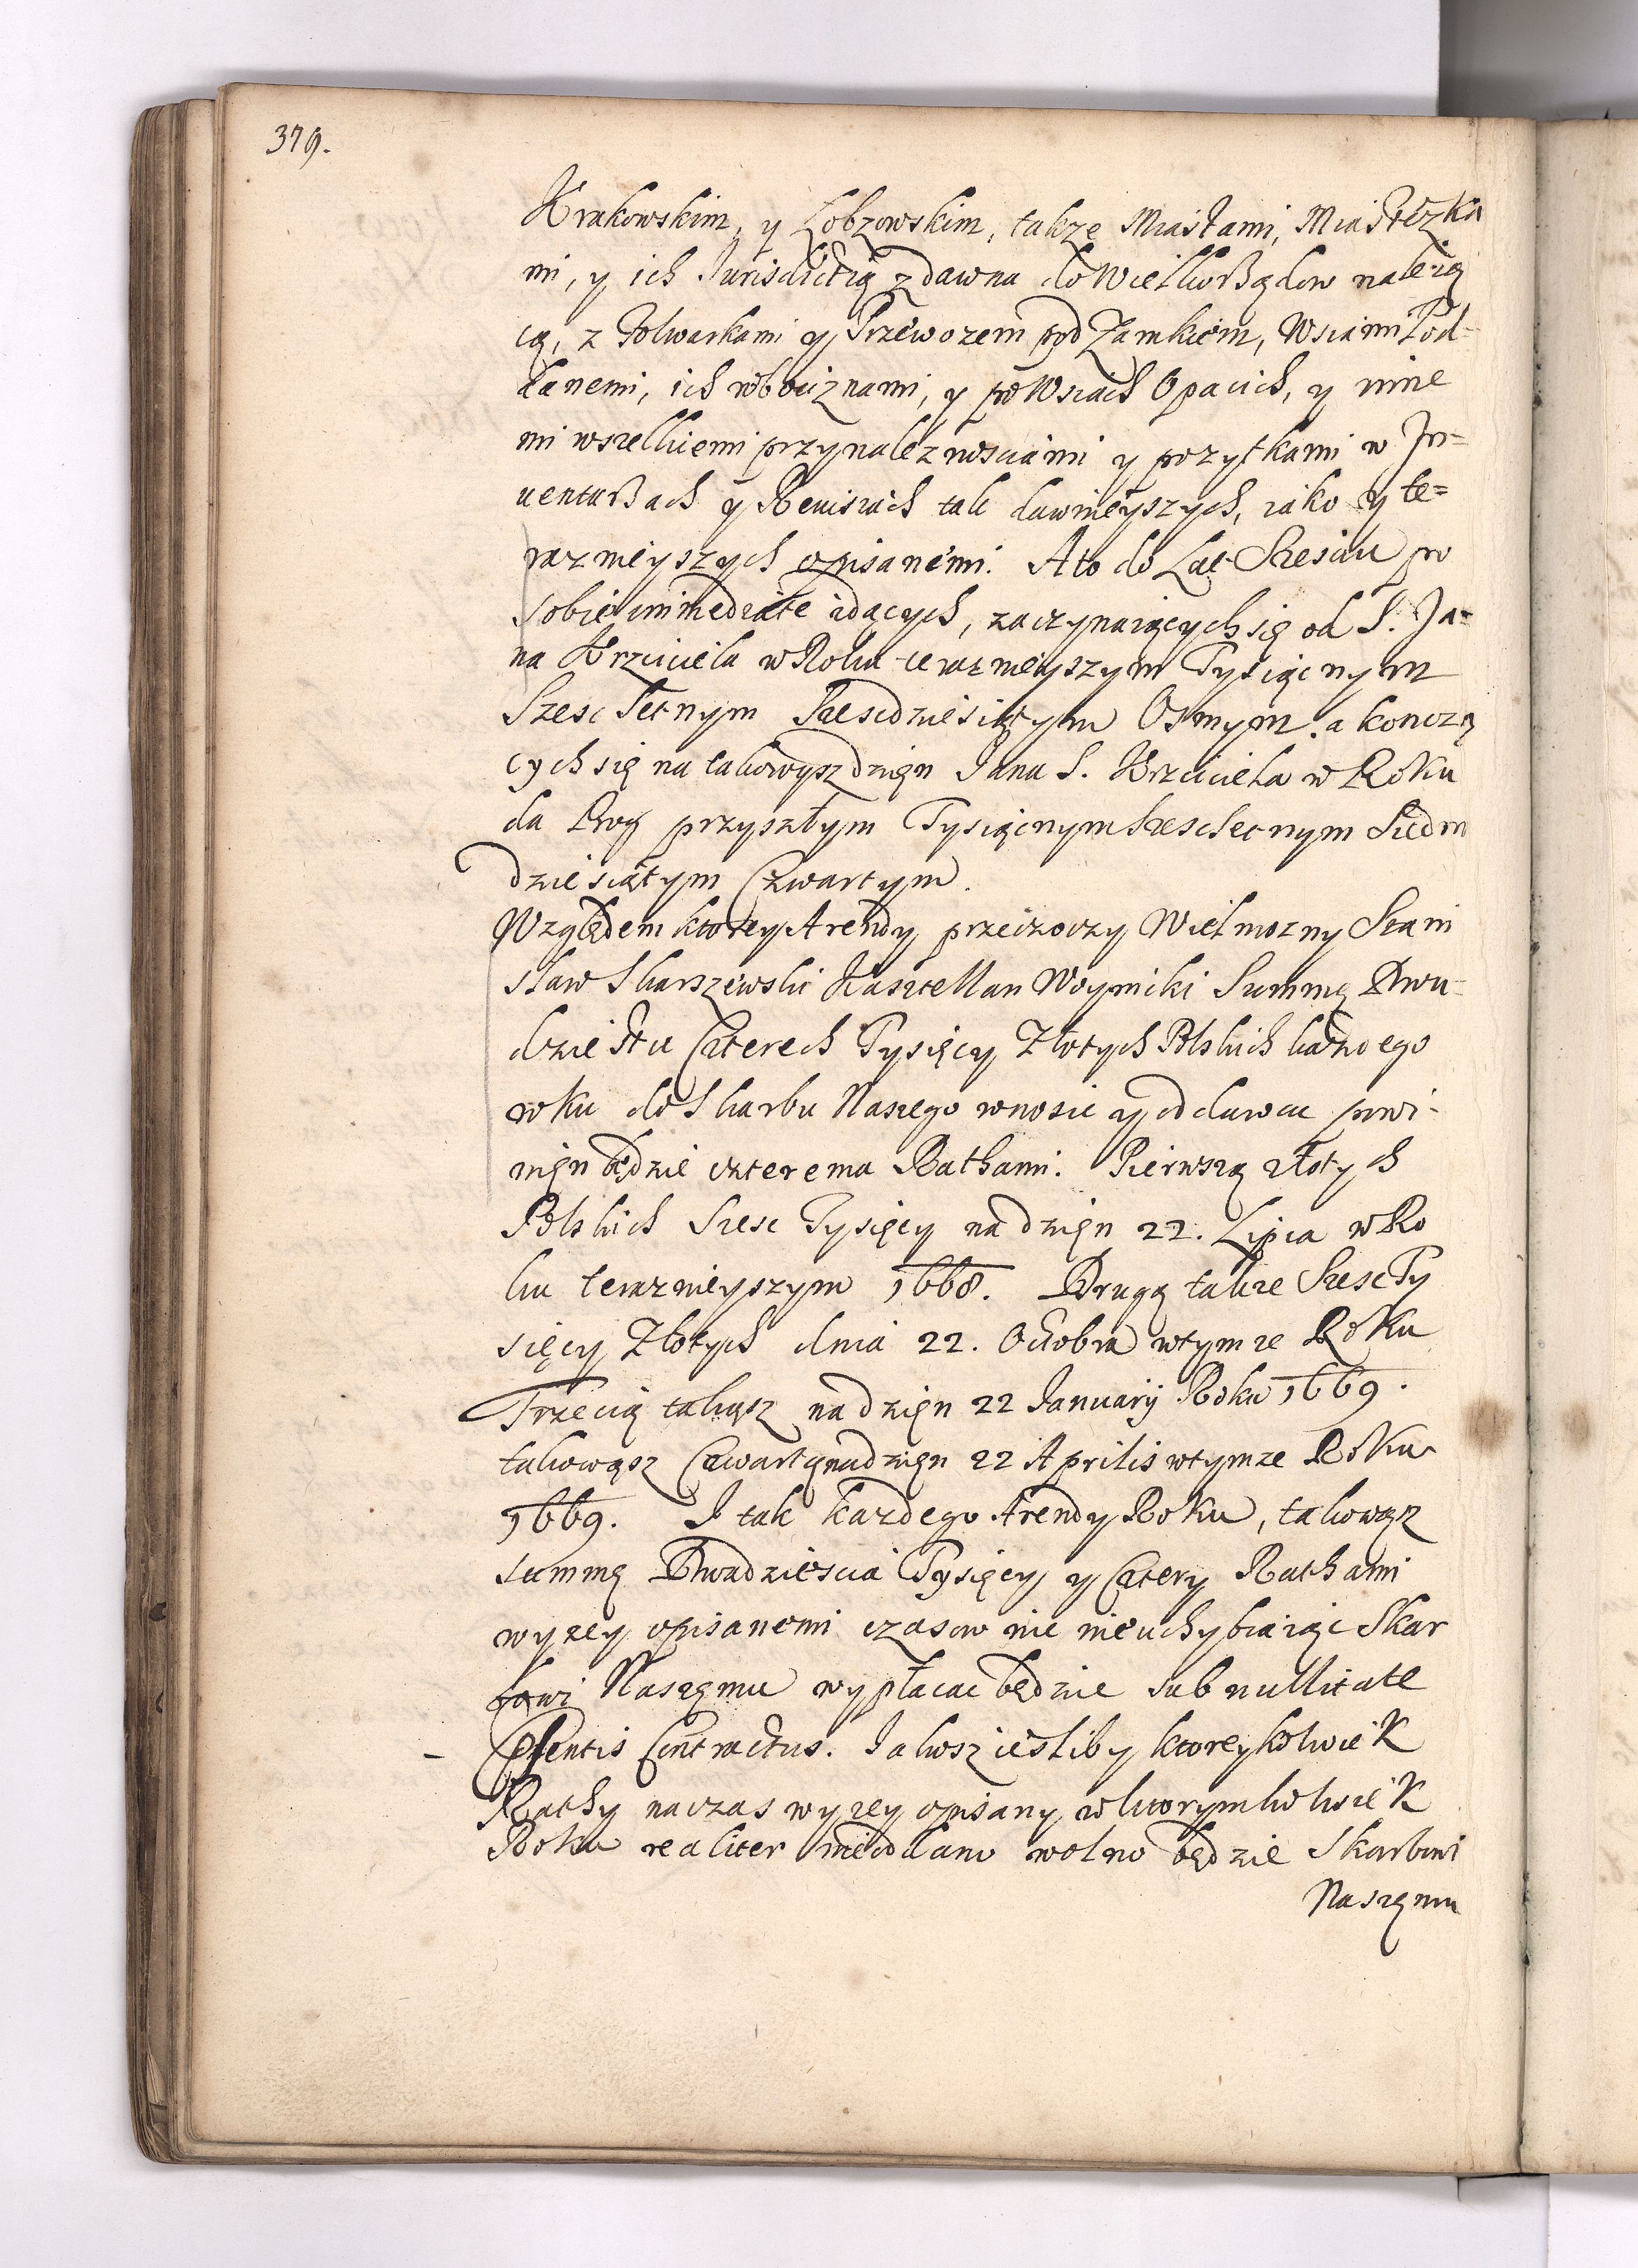 379.
Krakowskim, y Łobzowskim, takze Miastami, Miasteczka
mi, y ich Jurisdictią zdawna do Wielkorządow należą
cą, z Folwarkami y Przewozem pod Zamkiem, Wsiami Pod-
danemi, ich robociznami, y po Wsiach Opacich, y inne
mi wszelkiemi przynależnosciami y pozytkami w In=
uentarzach y Reuisiach tak dawnieyszych, iako y te=
raznieyszych opisanemi. A to do Lat Szesciu po
sobie immediate idących, zaczynaiących się od S. Ja=
na Krzciciela w Roku teraznieyszym Tysiącnym
Szescsetnym Szescdziesiątym Osmym, a kończą
cych się na takowysz dzięn Jana S. Krzciciela w Roku
da Bog przyszłym Tysiącnym Szescsetnym Siedm
dziesiątym Czwartym.
Względem ktorey Arendy przerzoczy Wielmozny Stani
sław Skarszewski Kasztellan Woynicki Summę Dwu-
dziestu Czterech Tysięcy Złotych Polskich każdego
roku do Skarbu Naszego wnosic y oddawac powi-
nięn będzie czterema Rathami. Pierwszą złotych
Polskich Szesc Tysięcy na dzięn 22. Lipca w Ro
ku teraznieyszym 1668. Drugą takze Szesc Ty
sięcy Złotych dnia 22. Octobra w tymze Roku
Trzecią takąsz na dzięn 22 January Roku 1669.
takowąsz Czwartą na dzięn 22 Aprilis w tymze Roku
1669. I tak każdego Arendy Roku, takowąsz
summę Dwadziescia Tysięcy y Cztery Rathami
wyzey opisanemi czasow nie nieuchybiaiąc Skar
bowi Naszęmu wypłacac będzie sub nullitate
pſentis Contractus. Jakosz iesliby ktoreykolwiek
Rathy na czas wyzey opisany w ktorymkolwiek
Roku realiter nieoddano wolno będzie Skarbowi
Naszęmu